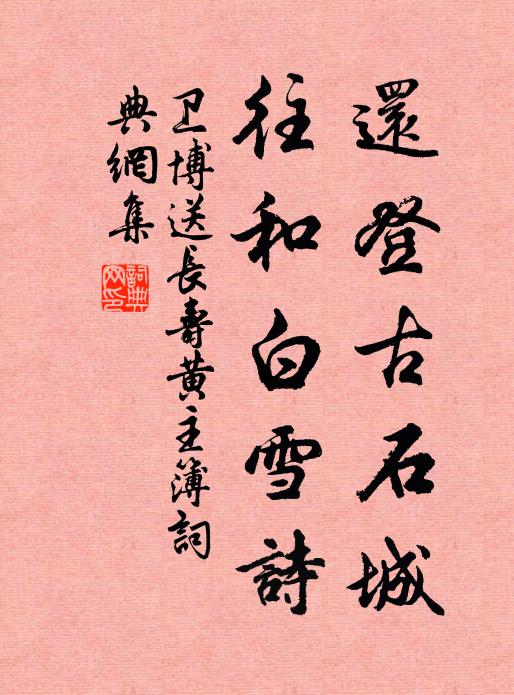 還登古石城
往和白雪詩
卫博送長壽黄主簿詞
典網集
詞典
网印